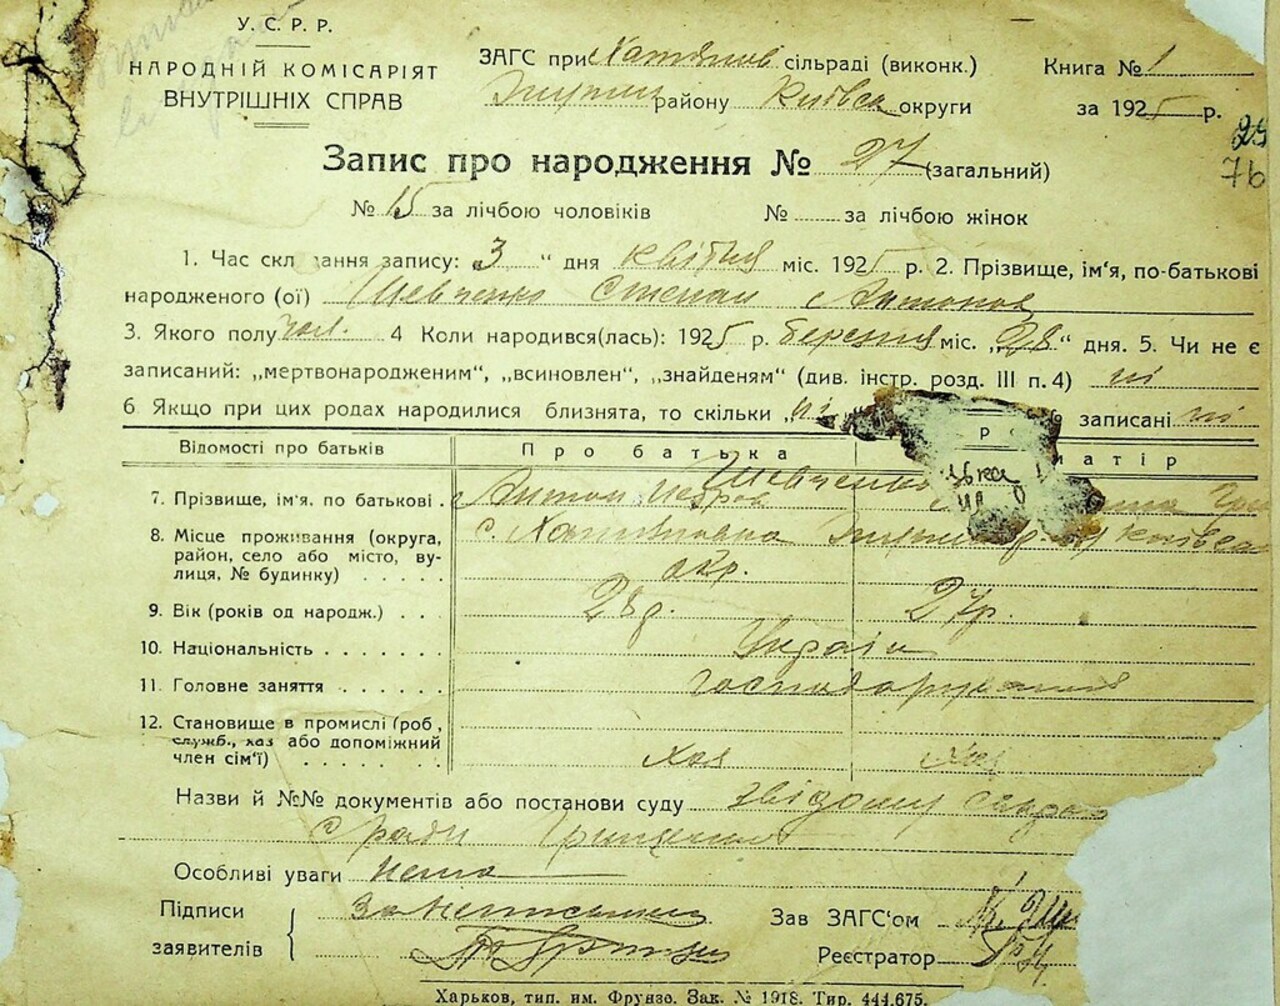 У. С. Р. Р.
НАРОДНІЙ КОМІСАРІЯТ
ВНУТРІШНІХ СПРАВ
ЗАГС при сільраді (виконк.)
району Київськ округи
Книга № 1
за 1925 р.
29
76
Запис про народження № 27 (загальний)
№ 15 за лічбою чоловіків № за лічбою жінок
1. Час скл дання запису: „3 “ дня квітня міс. 1925 р. 2. Прізвище, ім'я, по-батькові
народженого (ої) Шевченко Степан Антонов
3. Якого полу чол. 4 Коли народився(лась): 1925 р. березня міс. „28“ дня. 5. Чи не є
записаний: „мертвонародженим“, „всиновлен“, „знайденям“ (див. інстр. розд. III п. 4) ні
6 Якщо при цих родах народилися близнята, то скільки „ні записані ні
Відомості про батьків Про батька матір
7. Прізвище, ім'я, по батькові . Антон Петров Шевченко
8. Місце проживання (округа, с. Київськ
район, село або місто, ву-
лиця, № будинку) . . . . . окр.
9. Вік (років од народж.) . . . 28 р. 27 р.
10. Національність . . . . . . . Україн
11. Головне заняття . . . . . . господарювання
12. Становище в промислі (роб.,
служб., хаз або допоміжний
член сім'ї) . . . . . . . Хаз Хаз
Назви й №№ документів або постанови суду звідому
с ради Грищенко
Особливі уваги нема
Підписи
заявителів
За неписьмен
Зав ЗАГС'ом
Реєстратор
Харьков, тип. им. Фрунзе. Зак. № 1918. Тир. 444.675.